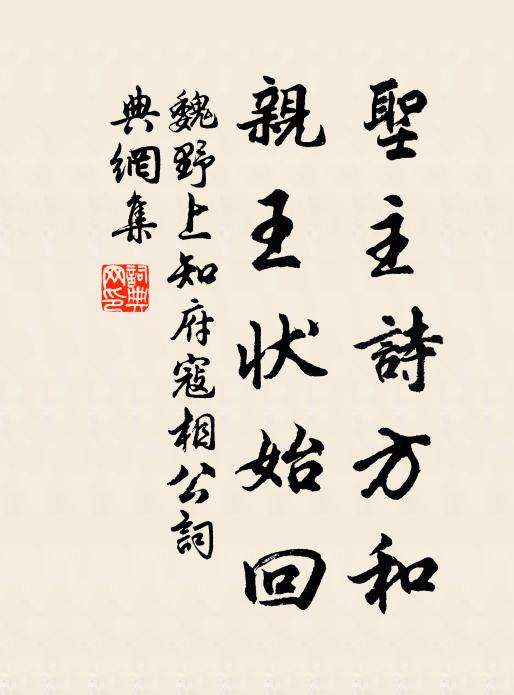 聖主詩方和
親王状始回
魏野上知府寇相公詞
典網集
詞典網印